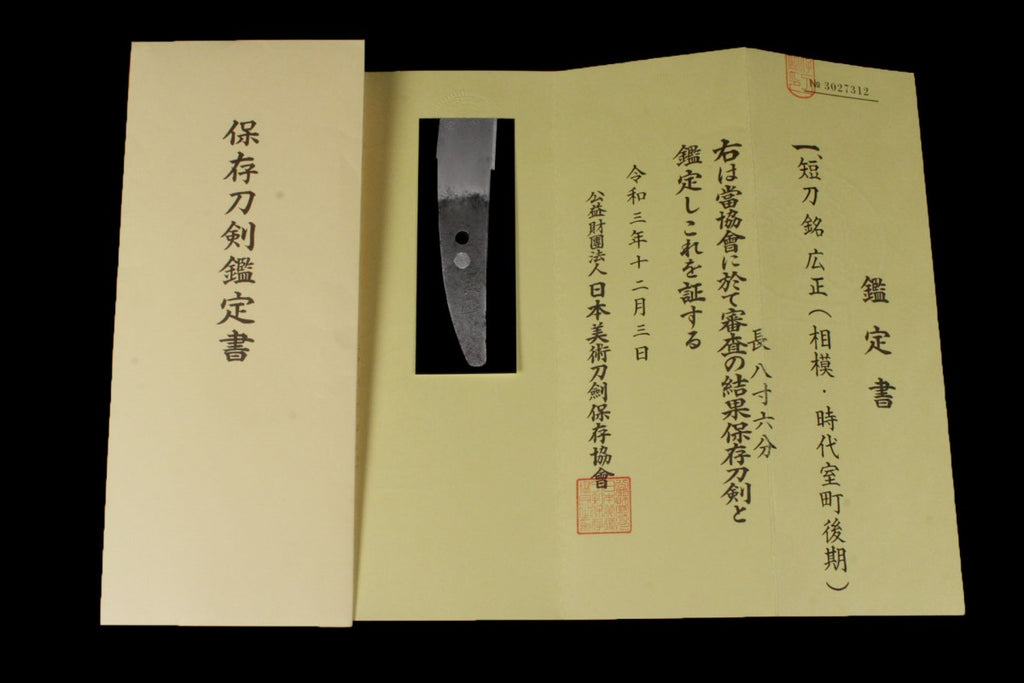 保存刀剣鑑定書
№ 3027312
鑑定書
一、短刀 銘 広正（相模・時代室町後期）
長 八寸六分
右は當協會に於て審査の結果保存刀剣と
鑑定しこれを証する
令和三年十二月三日
公益財團法人 日本美術刀劍保存協會